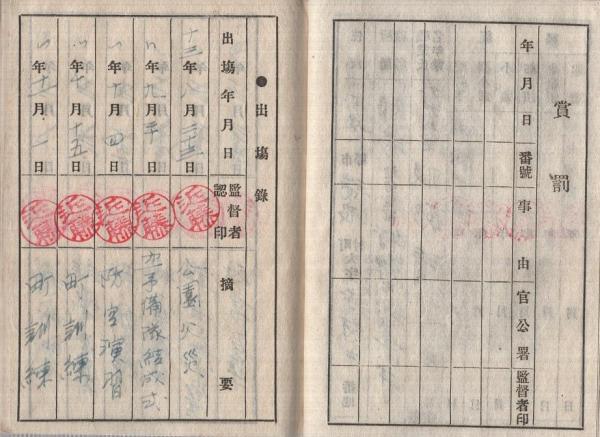 賞罰
年月日
番號
事由
官公署
監督者印
●出場錄
出場年月日
監督者認印
摘要
十三年八月二十三日
近藤
公園火災
〃年九月 日
近藤
備隊結成式
〃年十月四日
近藤
防空演習
〃年十月十五日
近藤
町訓練
〃年十一月一日
近藤
町訓練